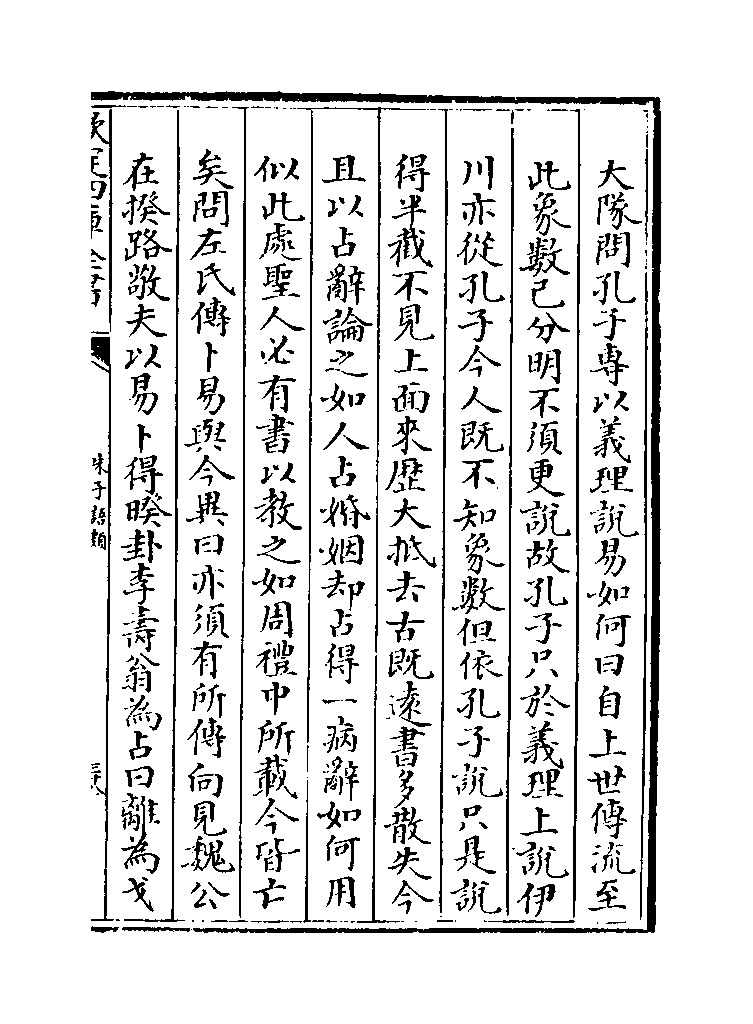 大隊問孔子專以義理說易如何曰自上世傳流至
此象數已分明不須更說故孔子只於義理上說伊
川亦從孔子今人既不知象數但依孔子說只是說
得半截不見上面來歷大抵去古既遠書多散失今
且以占辭論之如人占婚姻却占得一病辭如何用
似此處聖人必有書以教之如周禮中所載今皆亡
矣問左氏傳卜易與今異曰亦須有所傳向見魏公
在揆路敬夫以易卜得暌卦李壽翁為占曰離為戈
欽定四庫全書
朱子語類